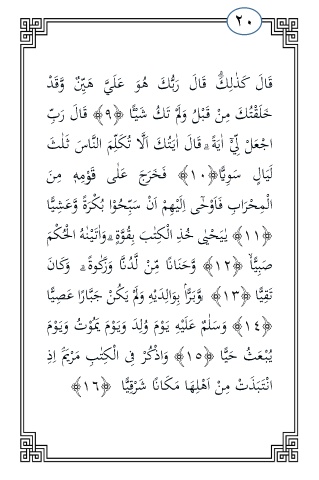 ٢٠
قَالَ كَذٰلِكَۚ قَالَ رَبُّكَ هُوَ عَلَيَّ هَيِّنٌ وَّقَدْ
خَلَقْتُكَ مِنْ قَبْلُ وَلَمْ تَكُ شَيْـًٔا ﴿٩﴾ قَالَ رَبِّ
اجْعَلْ لِّيْٓ اٰيَةً ۗقَالَ اٰيَتُكَ اَلَّا تُكَلِّمَ النَّاسَ ثَلٰثَ
لَيَالٍ سَوِيًّا ﴿١٠﴾ فَخَرَجَ عَلٰى قَوْمِهٖ مِنَ
الْمِحْرَابِ فَاَوْحٰٓى اِلَيْهِمْ اَنْ سَبِّحُوْا بُكْرَةً وَّعَشِيًّا
﴿١١﴾ يٰيَحْيٰى خُذِ الْكِتٰبَ بِقُوَّةٍ ۗوَاٰتَيْنٰهُ الْحُكْمَ
صَبِيًّاۙ ﴿١٢﴾ وَّحَنَانًا مِّنْ لَّدُنَّا وَزَكٰوةً ۗ وَكَانَ
تَقِيًّا ﴿١٣﴾ وَّبَرًّاۢ بِوَالِدَيْهِ وَلَمْ يَكُنْ جَبَّارًا عَصِيًّا
﴿١٤﴾ وَسَلٰمٌ عَلَيْهِ يَوْمَ وُلِدَ وَيَوْمَ يَمُوْتُ وَيَوْمَ
يُبْعَثُ حَيًّا ﴿١٥﴾ وَاذْكُرْ فِى الْكِتٰبِ مَرْيَمَۘ اِذِ
انْتَبَذَتْ مِنْ اَهْلِهَا مَكَانًا شَرْقِيًّا ﴿١٦﴾